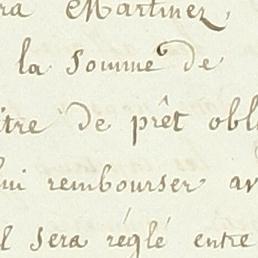 ra Martinez,
la somme de
itre de prêt obl
lui rembourser av
l sera réglé entre